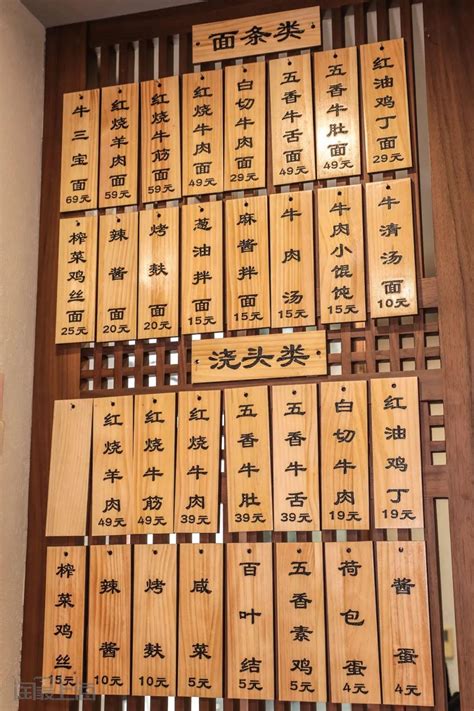 面条类
牛三宝面 69元
红烧羊肉面 59元
红烧牛筋面 59元
红烧牛肉面 49元
白切牛肉面 29元
五香牛舌面 49元
五香牛肚面 49元
红油鸡丁面 29元
榨菜鸡丝面 25元
辣酱面 20元
烤麸面 20元
葱油拌面 15元
麻酱拌面 15元
牛肉汤 15元
牛肉小馄饨 15元
牛清汤面 10元
浇头类
红烧羊肉 49元
红烧牛筋 39元
红烧牛肉 39元
五香牛肚 39元
五香牛舌 39元
白切牛肉 19元
红油鸡丁 19元
榨菜鸡丝 15元
辣酱 10元
烤麸 10元
咸菜 5元
百叶结 5元
五香素鸡 5元
荷包蛋 4元
酱蛋 4元